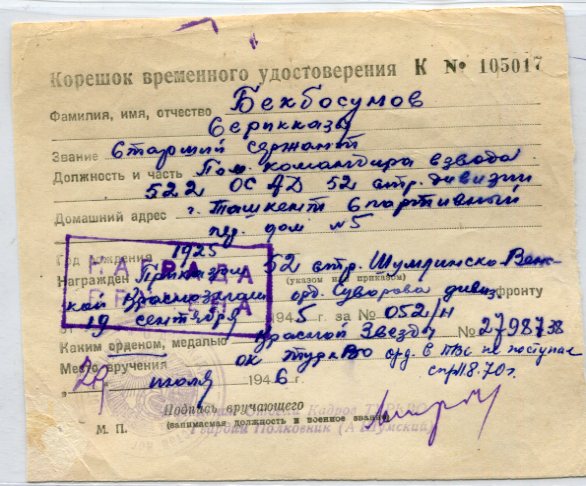 Корешок временного удостоверения К № 105017
Фамилия, имя, отчество Бекбосумов
Серикказы
Звание Старший сержант
Должность и часть Пом. командира взвода
522 ОСАД 52 стр. дивизии
Домашний адрес г. Ташкент Спартивный
пер. дом. №5
Год рождения 1925
НАГРАДА
Награжден Приказом 52 стр. Шумлинско-Венской
(указом или приказом)
Краснознам орд. Суворова дивиз. фронту
19 сентября 1945 г. за № 052/н
Каким орденом, медалью Красной Звезды № 2798738
Место вручения ОК ТуркВО орд. в не поступал
спр. 18.70г.
"29" июля 1946 г.
Подпись вручающего
(занимаемая должность и военное звание)
М. П.
Отдела Кадров ТУРКВО
Гвардии Полковник (А Шумский)